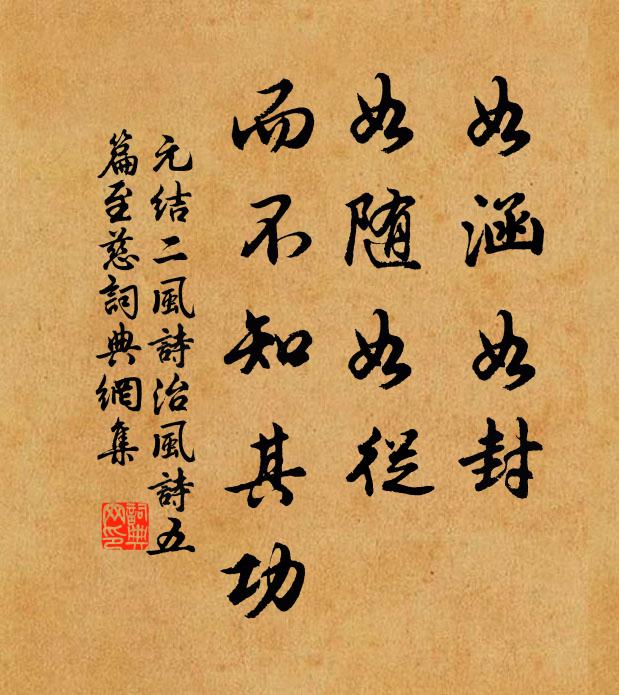 如涵如封
如随如從
而不知其功
元结二風詩治風詩五
篇至慈詞典網集
詞典网印